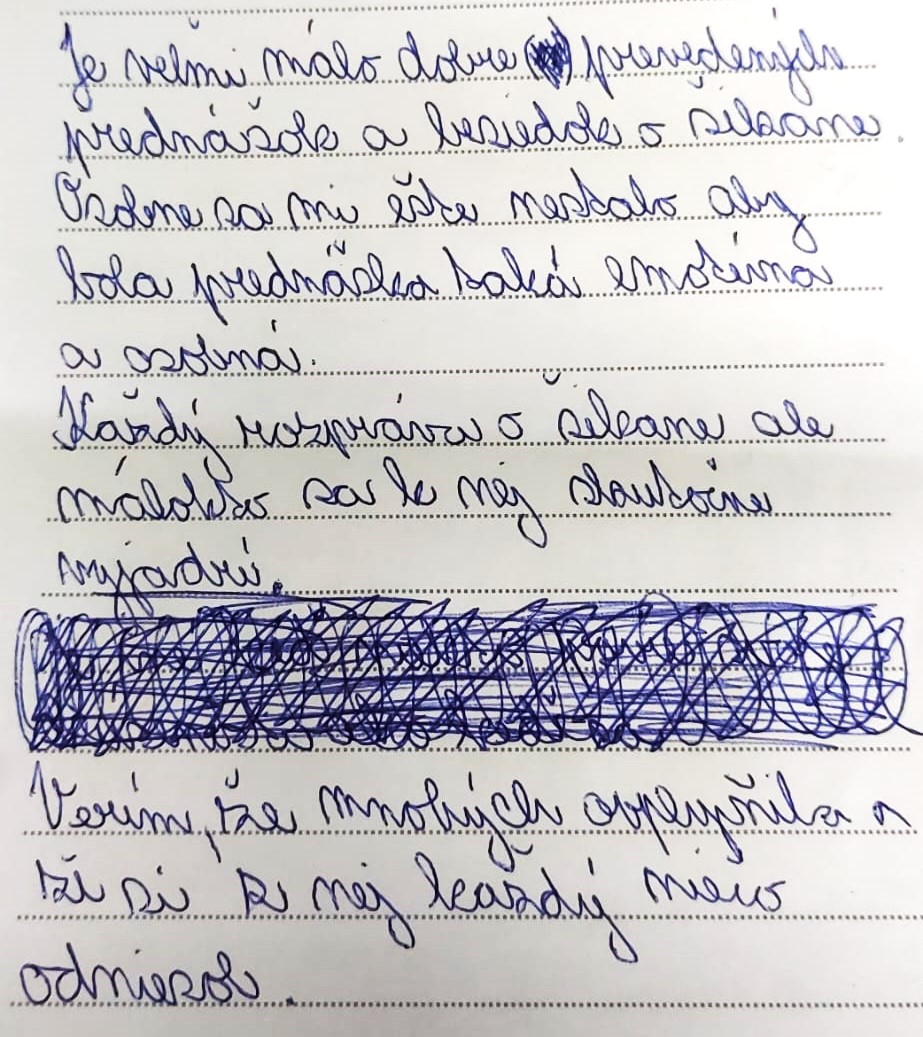 Je veľmi málo dobre prevedených
prednášok a besiedok o šikane.
Osobne sa mi ešte nestalo aby
bola prednáška taká emočná
a osobná.
Každý rozpráva o šikane ale
málokto sa k nej skutočne
vyjadrí.
Verím, že mnohých ovplyvnila a
že si z nej každý niečo
odniesol.